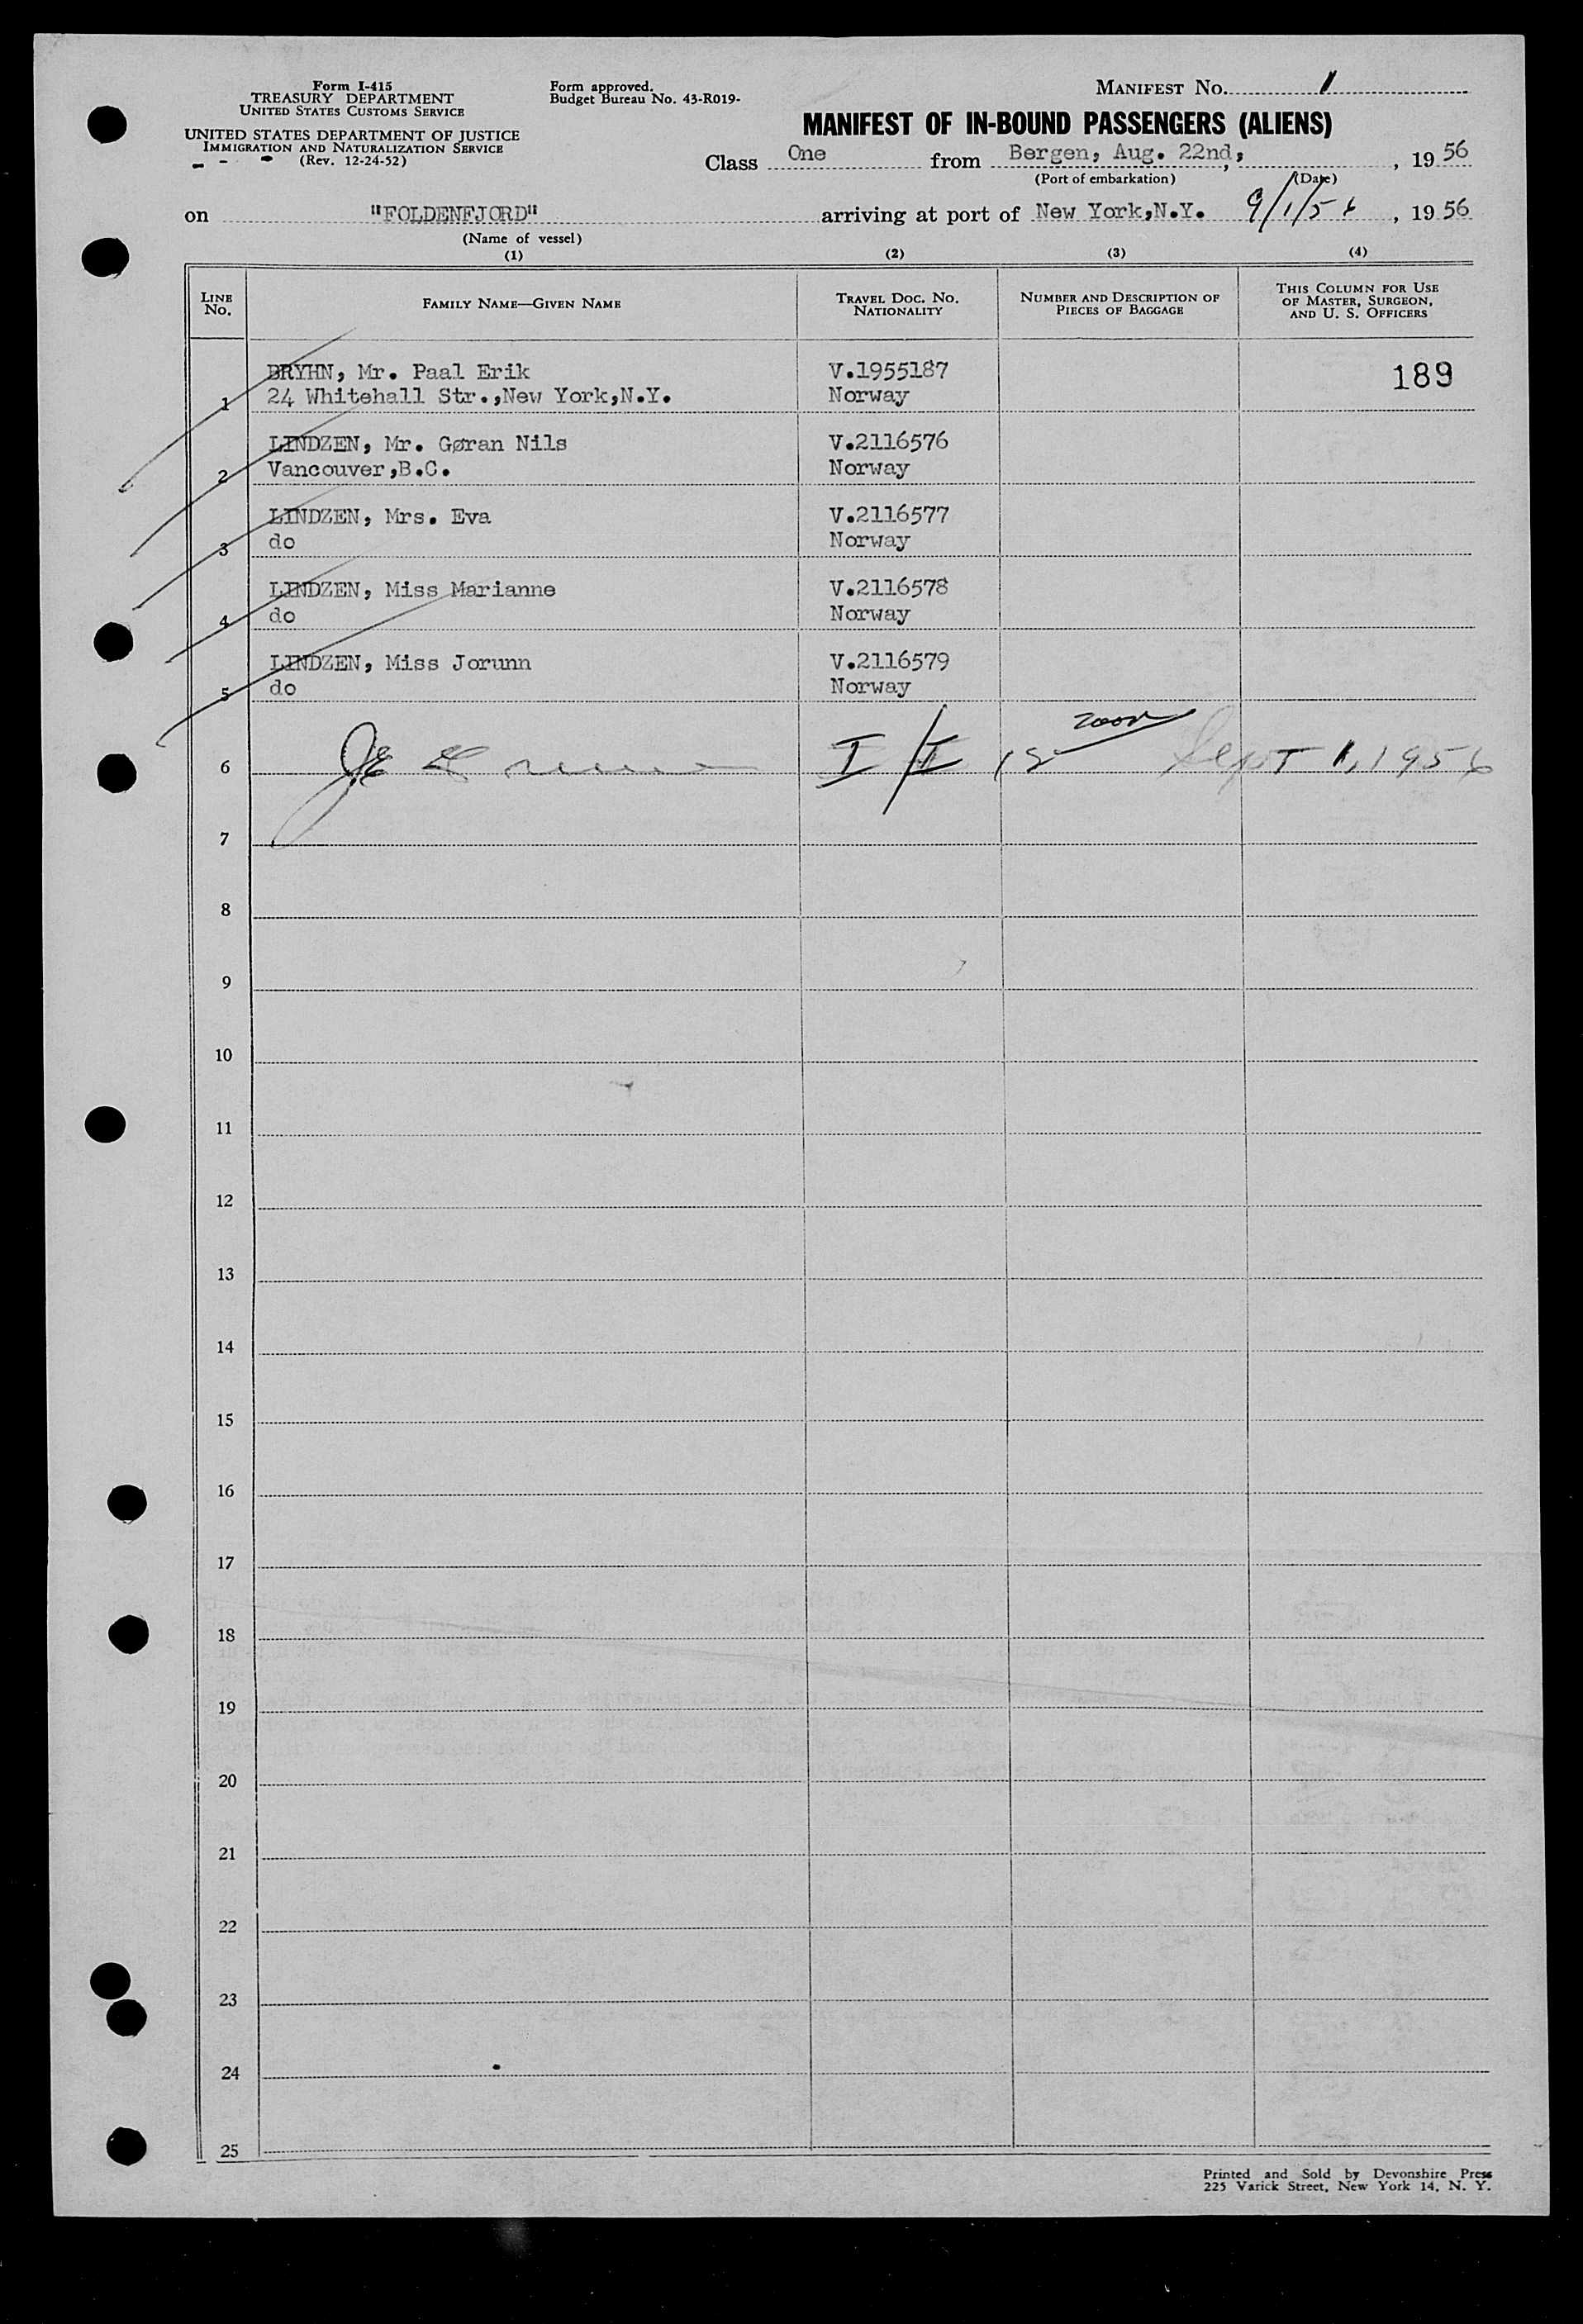 Form I-415
TREASURY DEPARTMENT
UNITED STATES CUSTOMS SERVICE
UNITED STATES DEPARTMENT OF JUSTICE
IMMIGRATION AND NATURALIZATION SERVICE
(Rev. 12-24-52)
Form approved.
Budget Bureau No. 43-R019-
MANIFEST NO. 1
MANIFEST OF IN-BOUND PASSENGERS (ALIENS)
Class One from Bergen, Aug. 22nd, , 1956
(Port of embarkation) (Date)
on "FOLDENFJORD" arriving at port of New York,N.Y. 9/1/56, 1956
(Name of vessel)
(1) (2) (3) (4)
LINE No. FAMILY NAME—GIVEN NAME TRAVEL DOC. NO. NATIONALITY NUMBER AND DESCRIPTION OF PIECES OF BAGGAGE THIS COLUMN FOR USE OF MASTER, SURGEON, AND U. S. OFFICERS
BRYHN, Mr. Paal Erik V.1955187 189
1 24 Whitehall Str.,New York,N.Y. Norway
LINDZEN, Mr. Gøran Nils V.2116576
2 Vancouver,B.C. Norway
LINDZEN, Mrs. Eva V.2116577
3 do Norway
LINDZEN, Miss Marianne V.2116578
4 do Norway
LINDZEN, Miss Jorunn V.2116579
5 do Norway
6 I/I Sept 1, 1956
7
8
9
10
11
12
13
14
15
16
17
18
19
20
21
22
23
24
25
Printed and Sold by Devonshire Press
225 Varick Street, New York 14, N. Y.